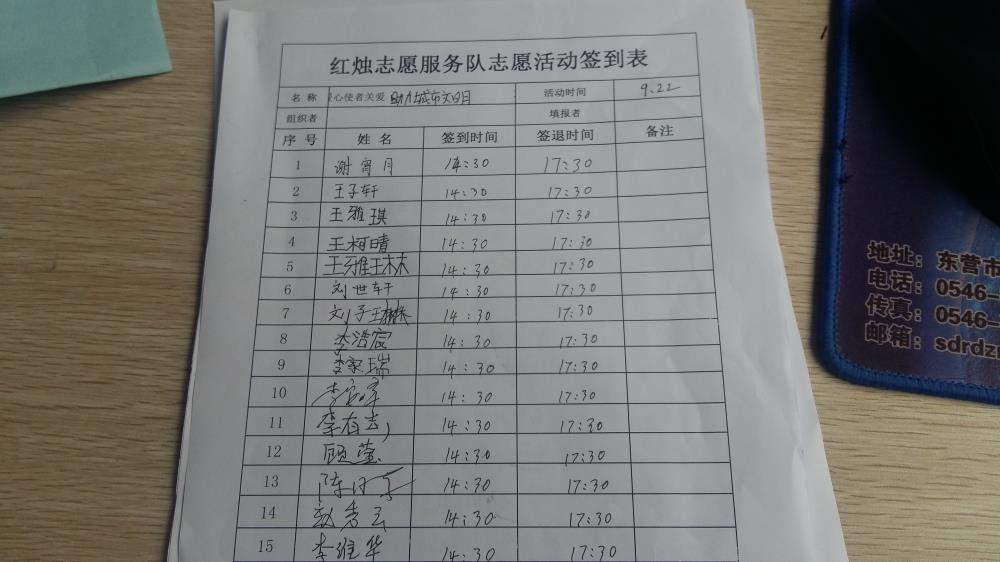 红烛志愿服务队志愿活动签到表
名 称 心使者关爱 助力城市文明 活动时间 9.22
组织者 填报者
序 号 姓 名 签到时间 签退时间 备注
1 谢宵月 14:30 17:30
2 王子轩 14:30 17:30
3 王雅琪 14:30 17:30
4 王柯晴 14:30 17:30
5 王雅琳 14:30 17:30
6 刘世轩 14:30 17:30
7 刘子琳 14:30 17:30
8 李浩宸 14:30 17:30
9 李家瑞 14:30 17:30
10 李 14:30 17:30
11 李有吉 14:30 17:30
12 顾莹 14:30 17:30
13 陈 14:30 17:30
14 赵秀云 14:30 17:30
15 李维华 14:30 17:30
地址：东营市
电话：0546-
传真：0546-
邮箱：sdrdz